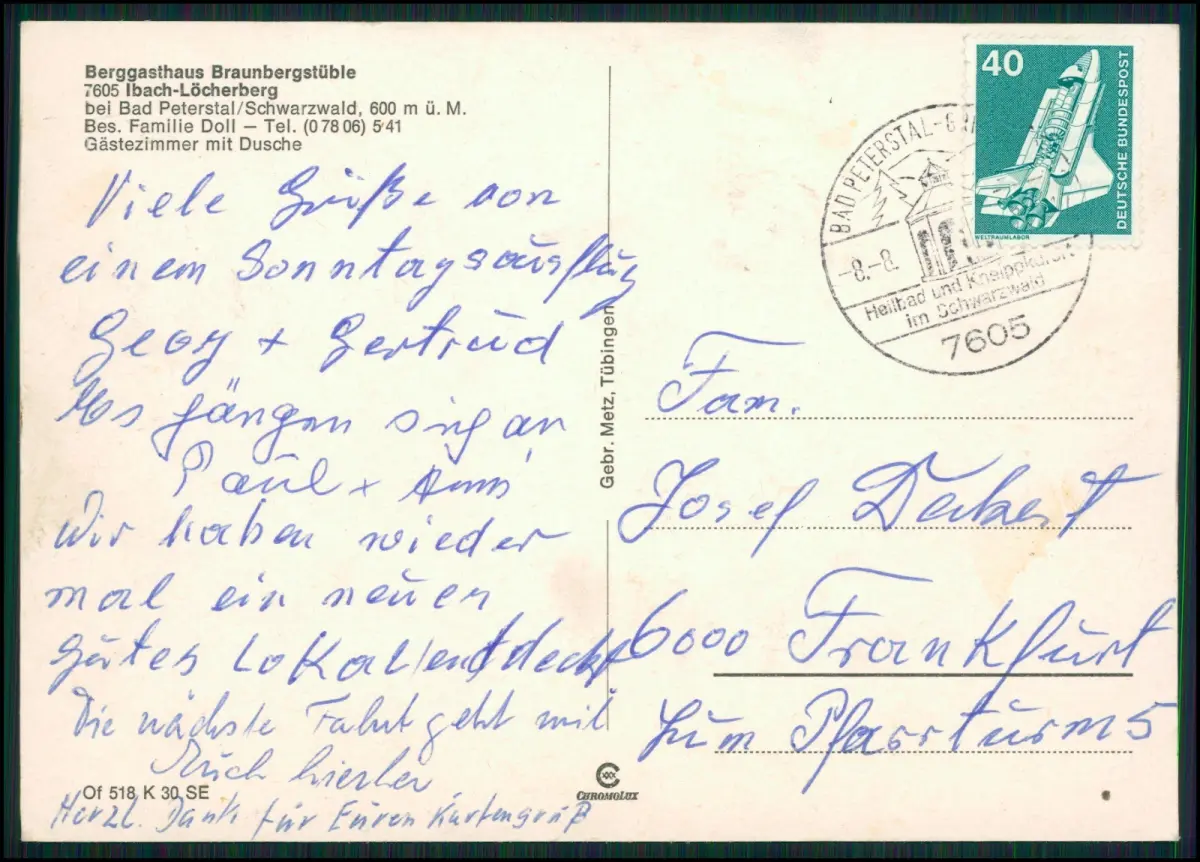 Berggasthaus Braunbergstüble
7605 Ibach-Löcherberg
bei Bad Peterstal/Schwarzwald, 600 m ü. M.
Bes. Familie Doll – Tel. (0 78 06) 5 41
Gästezimmer mit Dusche
Viele Grüße von
einem Sonntagsausflug
Georg + Gertrud
sich an
Paul + Anni
Wir haben wieder
mal ein neues
gutes Lokal entdeckt
Die nächste Fahrt geht mit
Euch hierher
Herzl. Dank für Euren Kartengruß
Of 518 K 30 SE
Gebr. Metz, Tübingen
CHROMOLUX
40
DEUTSCHE BUNDESPOST
WELTRAUMLABOR
BAD PETERSTAL-GRI
-8.-8.
Heilbad und Kneippkurort
im Schwarzwald
7605
Fam.
Josef Deckert
6000 Frankfurt
Zum Pfarrturm 5